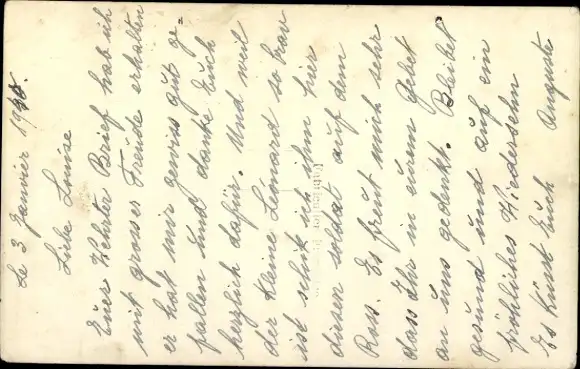 Le 3 Janvier 19
Liebe Louise
Euer Wehrter Brief hab ich
mit grosser Freude erhalten
er hat mir gewiss gut ge-
fallen und danke Euch
herzlich dafür. Und weil
der kleine Lénard so brav
ist schik ich ihm hier
diesen soldat auf dem
Ross. Es freut mich sehr
dass Ihr in eurem Gebet
an uns gedenkt. Bleibet
gesund und auf ein
fröhliches Wiedersehn
Es Küsst Euch Auguste